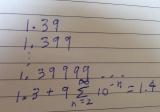 1.39
1.399
⋮
1.39999 ...
1.3 + 9 ∞∑n=2 10⁻ⁿ = 1.4